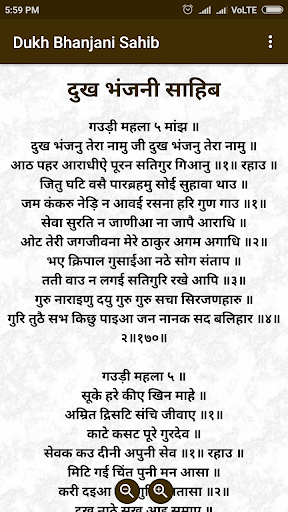 5:59 PM VoLTE
Dukh Bhanjani Sahib
दुख भंजनी साहिब
गउड़ी महला ५ मांझ ॥
दुख भंजनु तेरा नामु जी दुख भंजनु तेरा नामु ॥
आठ पहर आराधीऐ पूरन सतिगुर गिआनु ॥१॥ रहाउ ॥
जितु घटि वसै पारब्रहमु सोई सुहावा थाउ ॥
जम कंकरु नेड़ि न आवई रसना हरि गुण गाउ ॥१॥
सेवा सुरति न जाणीआ ना जापै आराधि ॥
ओट तेरी जगजीवना मेरे ठाकुर अगम अगाधि ॥२॥
भए क्रिपाल गुसाईआ नठे सोग संताप ॥
तती वाउ न लगई सतिगुरि रखे आपि ॥३॥
गुरु नाराइणु दयु गुरु गुरु सचा सिरजणहारु ॥
गुरि तुठै सभ किछु पाइआ जन नानक सद बलिहार ॥४॥
२॥१७०॥
गउड़ी महला ५ ॥
सूके हरे कीए खिन माहे ॥
अम्रित द्रिसटि संचि जीवाए ॥१॥
काटे कसट पूरे गुरदेव ॥
सेवक कउ दीनी अपुनी सेव ॥१॥ रहाउ ॥
मिटि गई चिंत पुनी मन आसा ॥
करी दइआ गुणतासा ॥२॥
दुख नाठे सुख आइ समाए ॥